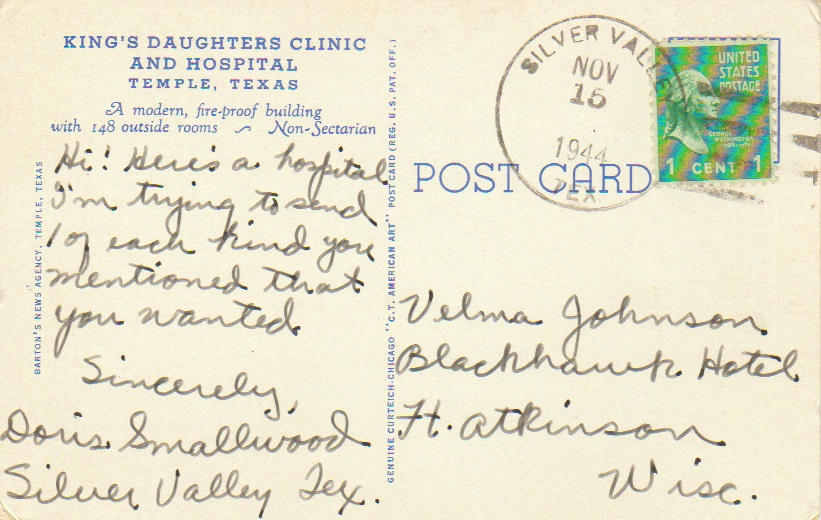 KING'S DAUGHTERS CLINIC
AND HOSPITAL
TEMPLE, TEXAS
A modern, fire-proof building
with 148 outside rooms ~ Non-Sectarian
Hi! Here's a hospital
I'm trying to send
1 of each kind you
mentioned that
you wanted
Sincerely,
Doris Smallwood
Silver Valley Tex.
BARTON'S NEWS AGENCY, TEMPLE, TEXAS
GENUINE CURTEICH-CHICAGO "C.T. AMERICAN ART" POSTCARD (REG. U.S. PAT. OFF.)
SILVER VALLEY
NOV
15
1944
TEX
UNITED
STATES
POSTAGE
GEORGE
WASHINGTON
1 CENT 1
POST CARD
Velma Johnson
Blackhawk Hotel
Ft. Atkinson
Wisc.